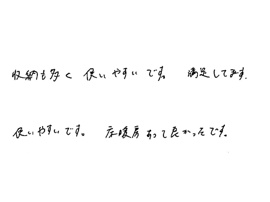 収納も多く 使いやすいです。 満足してます.
使いやすいです。 床暖房あって良かったです。